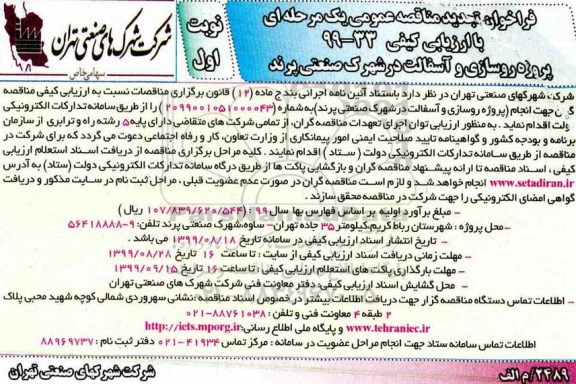 فراخوان تجدید مناقصه عمومی یک مرحله ای
با ارزیابی کیفی ۳۳-۹۹
پروژه روسازی و آسفالت در شهرک صنعتی پرند
نوبت
اول
شرکت شهرک های صنعتی تهران
سهامی خاص
شرکت شهرکهای صنعتی تهران در نظر دارد باستناد آئین نامه اجرایی بند ج ماده (۱۲) قانون برگزاری مناقصات نسبت به ارزیابی کیفی مناقصه
جهت انجام (پروژه روسازی و آسفالت در شهرک صنعتی پرند) به شماره (۲۰۹۹۰۰۱۰۵۱۰۰۰۰۴۳) را از طریق سامانه تدارکات الکترونیکی
دولت اقدام نماید. به منظور ارزیابی توان اجرای تعهدات مناقصه گران، از تمامی شرکت های متقاضی دارای پایه ۵ رشته راه و ترابری از سازمان
برنامه و بودجه کشور و گواهینامه تایید صلاحیت ایمنی امور پیمانکاری از وزارت تعاون، کار و رفاه اجتماعی دعوت می گردد که برای شرکت در
مناقصه از طریق سامانه تدارکات الکترونیکی دولت (ستاد) اقدام نمایند. کلیه مراحل برگزاری مناقصه از دریافت اسناد استعلام ارزیابی
کیفی، اسناد مناقصه تا ارائه پیشنهاد مناقصه گران و بازگشایی پاکت ها از طریق درگاه سامانه تدارکات الکترونیکی دولت (ستاد) به آدرس
www.setadiran.ir انجام خواهد شد و لازم است مناقصه گران در صورت عدم عضویت قبلی، مراحل ثبت نام در سایت مذکور و دریافت
گواهی امضای الکترونیکی را جهت شرکت در مناقصه محقق سازند.
- مبلغ برآورد اولیه بر اساس فهارس بها سال ۹۹ : (۱۰۷/۸۳۹/۶۲۰/۵۴۴ ریال)
- محل پروژه : شهرستان رباط کریم، کیلومتر ۳۵ جاده تهران - ساوه، شهرک صنعتی پرند تلفن: ۹-۵۶۴۱۸۸۸۸
- تاریخ انتشار اسناد ارزیابی کیفی در سامانه تاریخ ۱۳۹۹/۰۸/۱۸ می باشد.
- مهلت زمانی دریافت اسناد ارزیابی کیفی از سایت : تا ساعت ۱۶ تاریخ ۱۳۹۹/۰۸/۲۸
- مهلت بارگذاری پاکت های استعلام ارزیابی کیفی : تا ساعت ۱۶ تاریخ ۱۳۹۹/۰۹/۱۵
- محل گشایش اسناد ارزیابی کیفی دفتر معاونت فنی شرکت شهرک های صنعتی تهران
- اطلاعات تماس دستگاه مناقصه گزار جهت دریافت اطلاعات بیشتر در خصوص اسناد مناقصه : نشانی سهروردی شمالی کوچه شهید محبی پلاک
۲ طبقه ۴ معاونت فنی و تلفن : ۰۲۱-۸۸۷۶۱۰۳۸
www.tehraniec.ir و پایگاه ملی اطلاع رسانی: http://iets.mporg.ir
- اطلاعات تماس سامانه ستاد جهت انجام مراحل عضویت در سامانه : مرکز تماس ۴۱۹۳۴-۰۲۱ دفتر ثبت نام : ۸۸۹۶۹۷۳۷
۲۴۸۹/م الف
شرکت شهرکهای صنعتی تهران